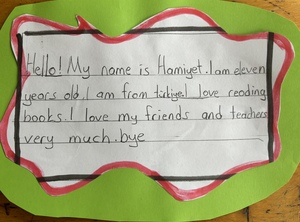 Hello! My name is Hamiyet. I am eleven
years old. I am from türkiye. I love reading
books. I love my friends and teachers
very much. bye